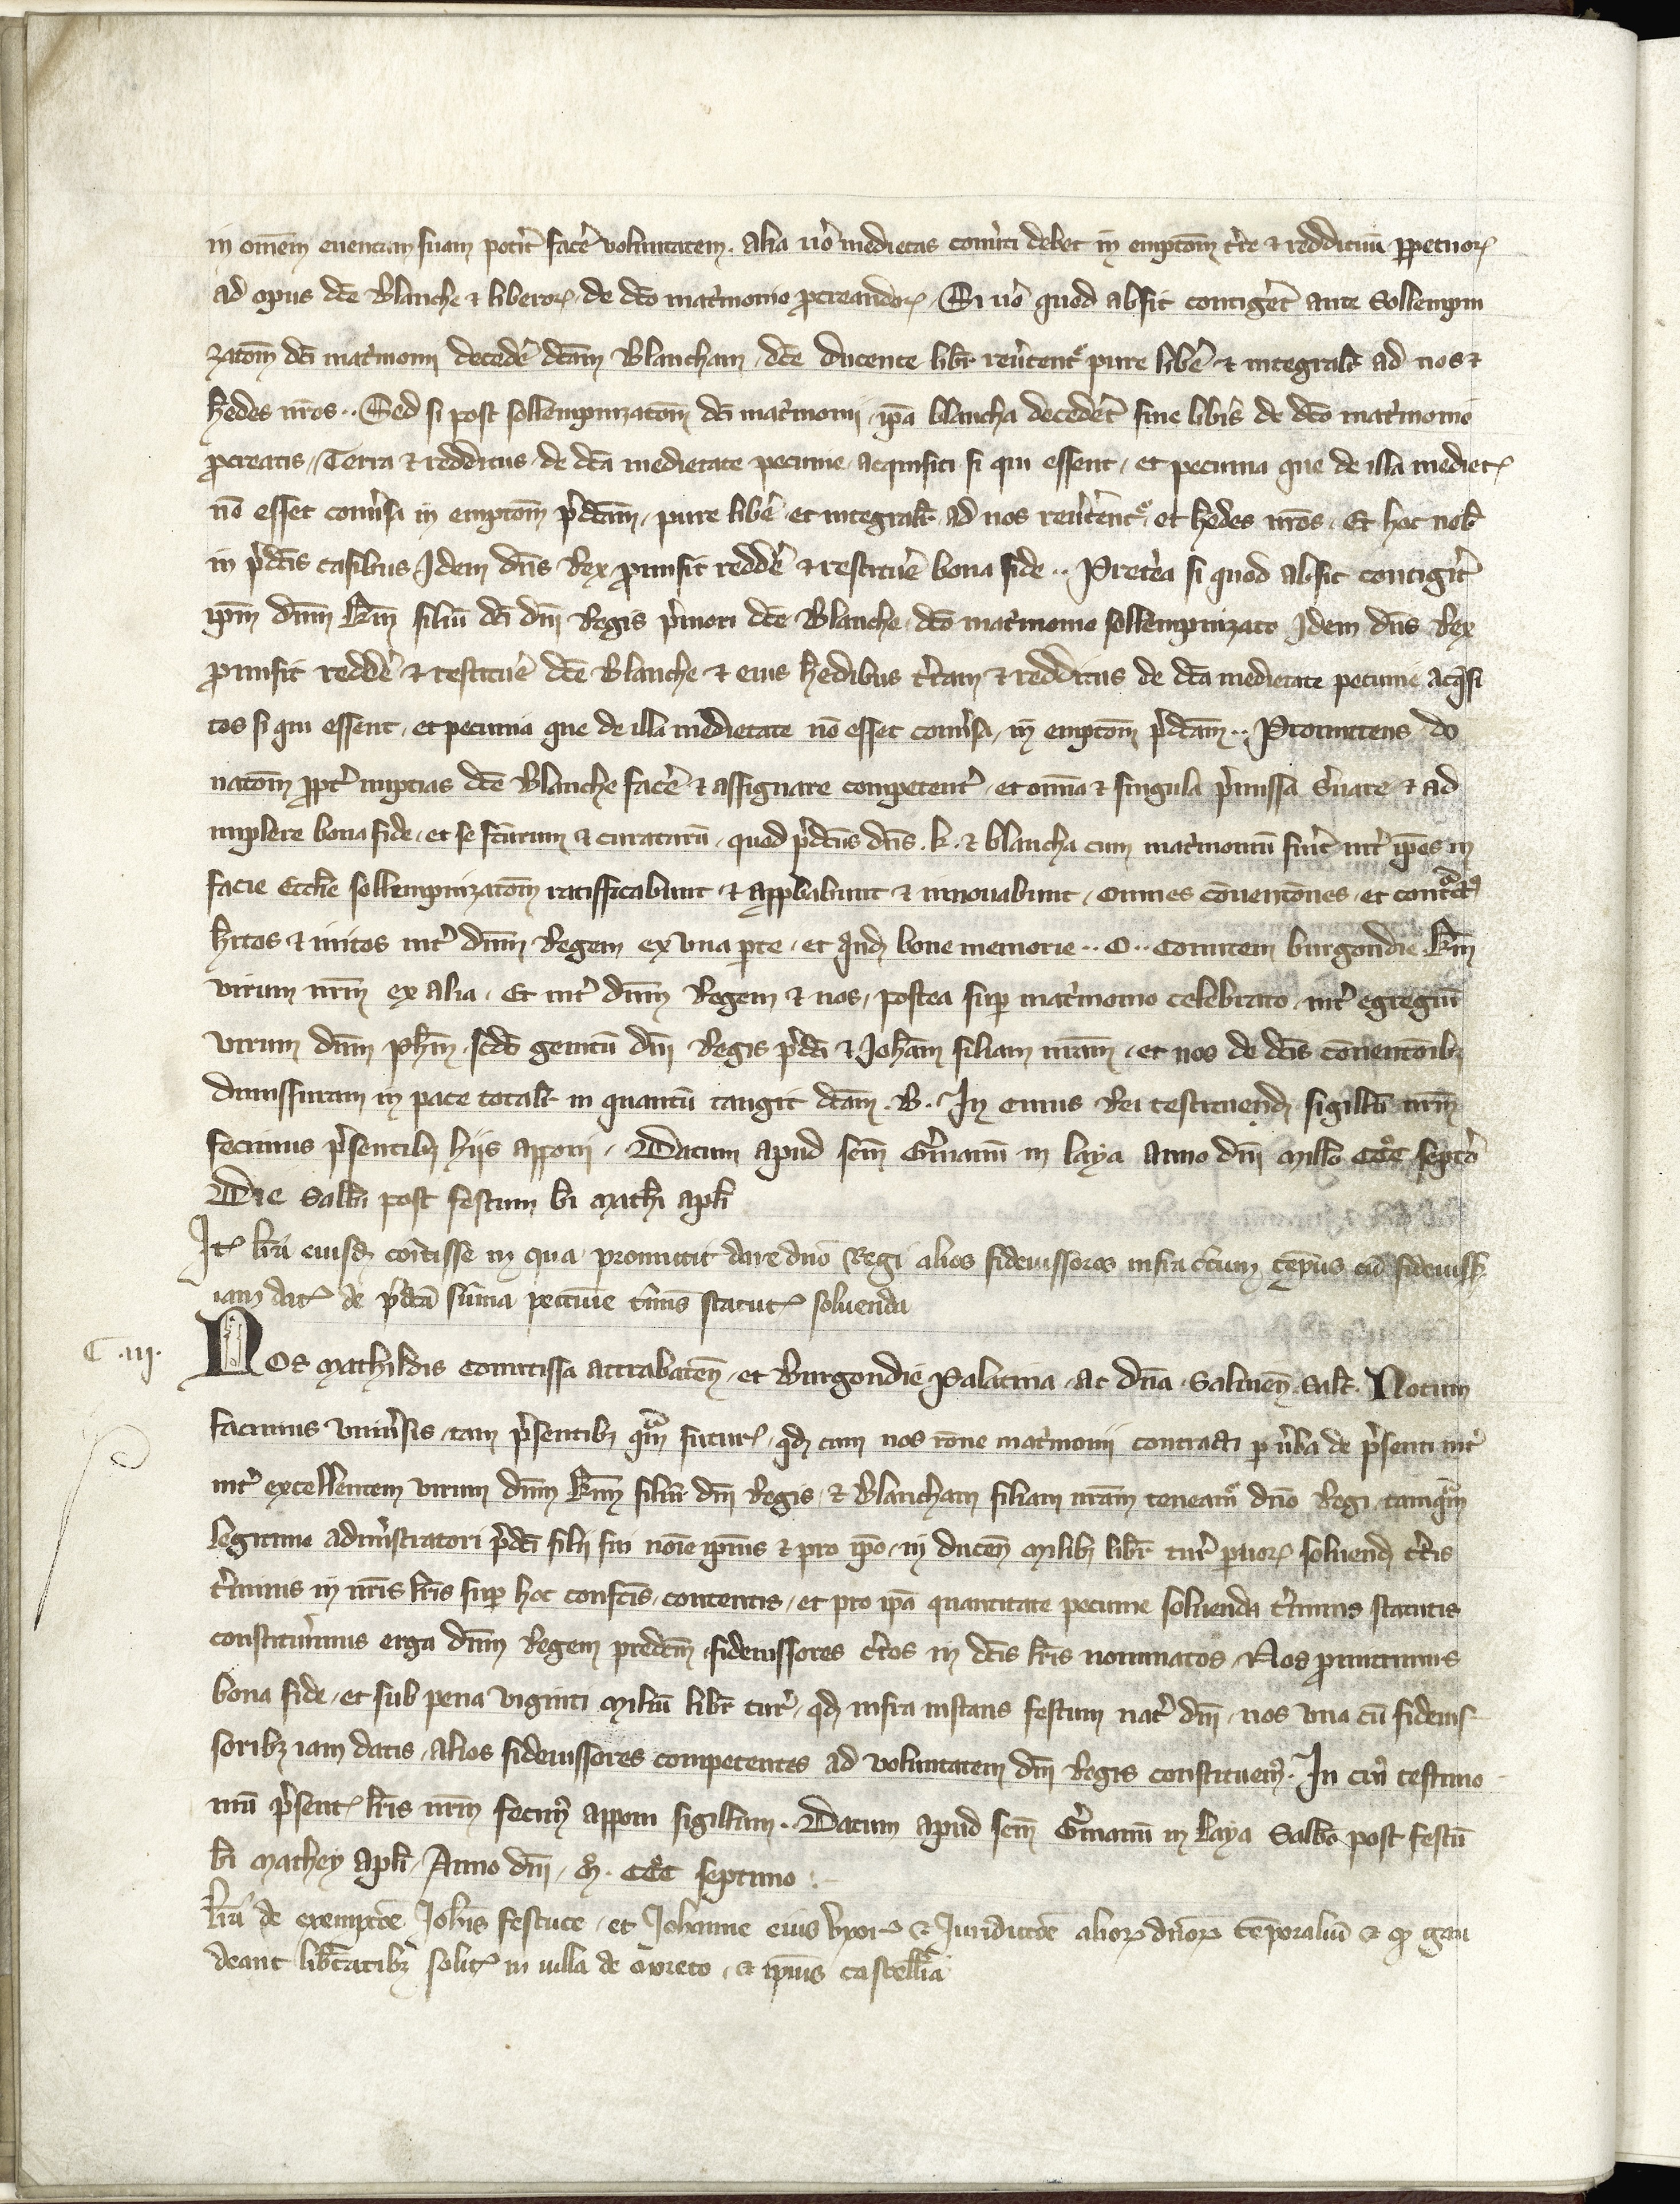 in om̄em euentum suam pot̾it fac̾e voluntatem. alia u̾o medietas conu̾ti debet in emptōem t̾re ⁊ reddituū ꝑpetuoꝝ
ad opus dc̄e Blanche ⁊ liberoꝝ de dc̄o mat̾monio ꝓcreandoꝝ. Si u̾o quod absit contig̾et ante Sollempni
zatōem dc̄i mat̾monij deced̾e dc̄am Blancham, dc̄e ducente libr̄ reu̾tent᷑ pure lib̾e ⁊ integralr̄ ad nos ⁊
h̾edes nr̄os.. Sed si post sollempnizatōem dc̄i mat̾monij, ip̄a blancha deced̾et sine lib̾is de dc̄o mat̾monio
ꝓcreatis, Terra ⁊ redditus de dc̄a medietate pecunie acquisiti si qui essent, et pecunia que de illa mediet̴
nō esset conu̾sa in emptōem p̾dc̄am, pure lib̾e et integralr̄ ad nos reu̾tent᷑ et h̾edes nr̄os. Et hoc nob̄
in p̾dc̄is casibus Idem dn̄s Rex ꝓmisit redd̾e ⁊ restitu̾e bona fide.. Pret̾ea si quod absit contig̾it
ip̄m dn̄m km̄ filiū dc̄i dn̄i Regis p̾mori dc̄e Blanche, dc̄o mat̾monio sollempnizato Idem dn̄s Rex
ꝓmisit redd̾e ⁊ restitu̾e dc̄e Blanche ⁊ eius h̾edibus t̾ram ⁊ redditus de dc̄a medietate pecunie acq̾si
tos si qui essent, et pecunia que de illa medietate nō esset conu̾sa, in emptōem p̾dc̄am.. Promittens do
natōem ꝓpt̾ nupcias dc̄e Blanche fac̾e ⁊ assignare competent̾, et om̄ia ⁊ singula p̾missa s̾uare ⁊ ad
implere bona fide, et se fc̄urum ⁊ curaturū, quod p̾dc̄us dn̄s .k. ⁊ blancha cum mat̾moniū fu̾it int̾ ip̄os in
facie Eccl̄ie sollempnizatōem ratifficabunt ⁊ app̄babunt ⁊ innouabunt, omnes conuentōnes et cont̾ct᷒
h̾itos ⁊ initos int̾ dn̄m Regem ex vna ꝑte, et q̾nd̄ bone memorie ..O.. Comitem burgondie km̄
virum nr̄m ex alia. Et int̾ dn̄m Regem ⁊ nos, postea suꝑ mat̾monio celebrato, int̾ egregiū
virum dn̄m ph̄m, scd̄o genitū dn̄i Regis p̾dc̄i ⁊ Joh̄am filiam nr̄am, et nos de dc̄is conuentōibꝫ
dimissuram in pace totalr̄ in quantū tangit dc̄am .B. In cuius Rei testimoniend̄ sigillū nr̄m
fecimus p̾sentibꝫ hijs apponi. Datum apud sc̄m G̾manū in laya Anno dn̄i mill̄o CCC° septi̾o
Die Sabb̄i post festum bi̾ Mathi̾ apl̄i
It̴ lr̄a eiusd̄ comitisse in qua promittit dare dn̄o Regi alios fideiussores infra c̾tum tēpus cū fideiuss̴
iam dat̴ de p̾dc̄a sūma pecunie t̾mis statut̴ soluenda
C .iij.
Nos Mathildis Comitissa attrabaten̄, et Burgondie Palatina, ac dn̄a Salinen̄ Salt̄. Notum
facimus vniu̾sis, tam p̾sentibꝫ q̾m futur̴, qd̄ cum nos rōne mat̾monij contracti ꝑ u̾ba de p̾senti int̾
int̾ excellentem virum dn̄m km̄ filiū dn̄i Regis ⁊ Blancham filiam nr̄am teneam᷑ dn̄o Regi tamq̾m
legitimo admi̾stratori p̾dc̄i filij sui noīe ip̄ius ⁊ pro ip̄o, in ducen̄ milibꝫ libr̄ tur̄ ꝑuoꝝ soluend̄ c̾tis
t̾minis in nr̄is lr̄is suꝑ hoc confc̄is, contentis, et pro ip̄a quantitate pecunie soluenda t̾minis statutis
constitu̾imus erga dn̄m Regem predc̄m fideiussores c̾tos in dc̄is lr̄is nominatos, Nos ꝓmittimus
bona fide, et sub pena viginti miliū libr̄ tur̄, qd̄ infra instans festum nat̾ dn̄i, nos vna cū fideius-
soribꝫ iam datis, alios fideiussores competentes ad voluntatem dn̄i Regis constituem᷒. In cui᷒ testimo-
niū p̾sent̴ lr̄is nr̄m fecim᷒ apponi sigillum.. Datum apud sc̄m G̾manū in Laya Sabb̄o post festū
bi̾ Mathey apl̄i, Anno dn̄i, M̊. CCC° septimo:-
Lr̄a de exemptōe Joh̄is Festuce, et Johanne eius vxor̴ ⁊ Juridictōe alioꝝ dn̄oꝝ temporaliū ⁊ qd̄ gau
deant lib̾tatibꝫ solit̴ in villa de , ⁊ ip̄ius castell̄ia